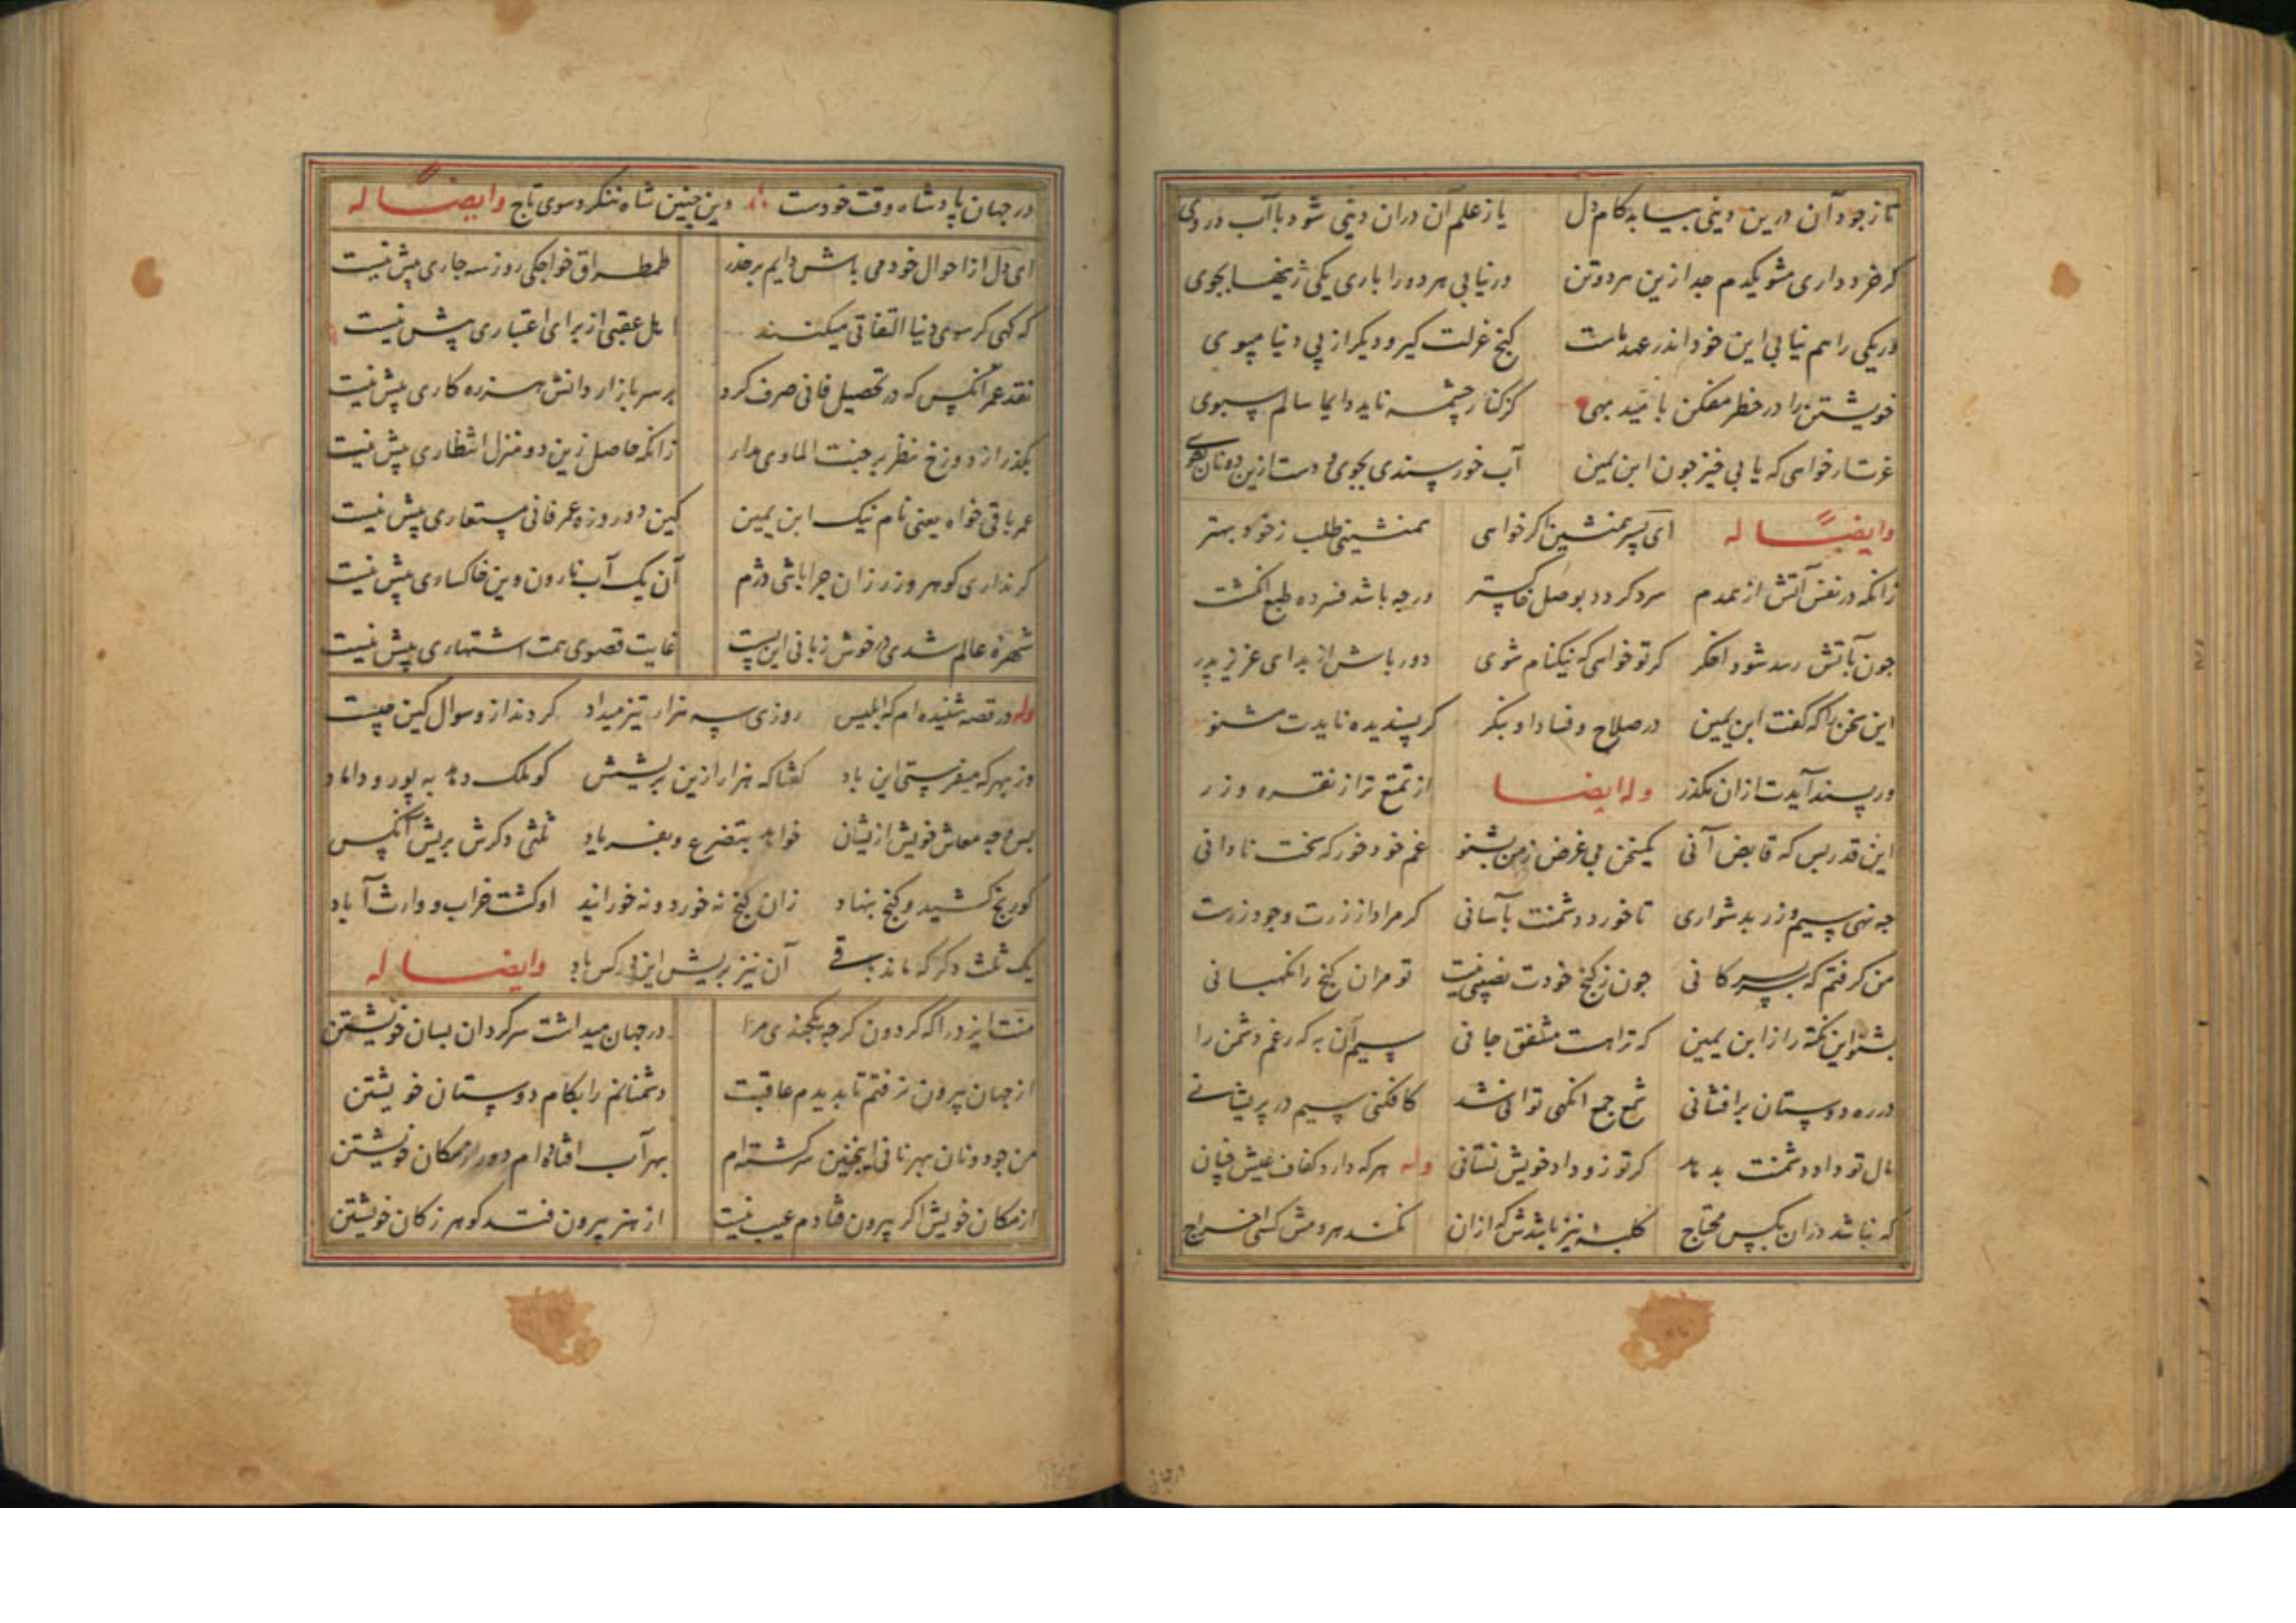 تا زجود آن درین دینی بیابد کام دل یا ز علم آن دران دینی شود با آب و روی
کر خرد داری مشو یکدم جدا زین هر دو تن ور نیابی هر دو را باری یکی زینها بجوی
ور یکی را هم نیابی این خود اندر عهد ماست کنج عزلت کیر و دیکر از پی دنیا مپوی
خویشتن را در خطر مفکن بامید بهی کز کنار چشمه ناید دایما سالم سبوی
عزت ار خواهی که یابی خیز جون ابن یمین آب خورسندی بجوی و دست ازین دونان بشوی
وایضاً له ای پسر همنشین اکر خواهی همنشینی طلب ز خود بهتر
زانکه در نفس آتش از همدم سرد کردد بوصل خاکستر ورچه باشد فسرده طبع انکشت
جون بآتش رسد شود اخکر کر تو خواهی که نیکنام شوی دور باش از بد ای عزیز پدر
این سخن را که کفت ابن یمین در صلاح و فساد او بنکر کر پسندیده نایدت مشنو
ور پسند آیدت ازان مکذر وله ایضا از تمتع تراز نقره و زر
این قدر بس که قابض آنی یکسخن بی غرض ز من بشنو غم خود خور که سخت نادانی
جه نهی سیم و زر بدشواری تا خورد دشمنت بآسانی کر مراد از زرت وجود زرست
من کرفتم که بسر کانی جون ز کنج خودت نصیبی نیست تو مران کنج را نکهبانی
بشنو این نکته را ز ابن یمین که ترا هست مشفق جانی سیم آن به که رغم دشمن را
در ره دوستان برافشانی شمع جمع انکهی توانی شد کافکنی سیم در پریشانی
مال تو داد دشمنت بدهد کر تو زو داد خویش نستانی وله هرکه دارد کفاف عیش جنان
که نباشد دران بکس محتاج کلبه نیز باشدش که ازان نکند هردمش کسی اخراج
در جهان پادشاه وقت خودست وین جنین شاه ننکرد سوی تاج وایضاً له
ای دل از احوال خود می باش دایم بر حذر طمطراق خواجکی روز سه جاری بیش نیست
که کهی کر سوی دنیا التفاتی میکنند اهل عقبی از برای اعتباری بیش نیست
نقد عمر آنکس که در تحصیل فانی صرف کرد بر سر بازار دانش هرزه کاری بیش نیست
بکذر از دوزخ نظر بر جنت الماوی مدار زانکه حاصل زین دو منزل انتظاری بیش نیست
عمر باقی خواه یعنی نام نیک ابن یمین کین دو روزه عمر فانی مستعاری بیش نیست
کر نداری کوهر و زر زان جرا باشی دژم آن یک آب نارون وین خاکساری بیش نیست
شهره عالم شدی در خوش زبانی این بست غایت قصوی همت اشتهاری بیش نیست
وله در قصه شنیده ام که ابلیس روزی سه هزار تیز میداد کردند ازو سوال کین جیست
وز بهر که میفرستی این باد کفتا که هزار ازین بریشش کو ملک دهد به پور و داماد
بس وجه معاش خویش ازیشان خواهد بتضرع و بفریاد ثلثی دکرش بریش آنکس
کو رنج کشید و کنج بنهاد زان کنج نه خورد و نه خورانید او کشت خراب و وارث آباد
یک ثلث دکر که ماند باقی آن نیز بریش این کس باد وایضا له
منت ایزد را که کردون کرجه یکجندی مرا در جهان میداشت سرکردان بسان خویشتن
از جهان بیرون نرفتم تا بدیدم عاقبت دشمنانم را بکام دوستان خویشتن
من جو دونان بهر نانی اینجنین سرکشته ام بهر آب افتاده ام دور از مکان خویشتن
از مکان خویش اکر بیرون فتادم عیب نیست از هنر بیرون فتد کوهر ز کان خویشتن